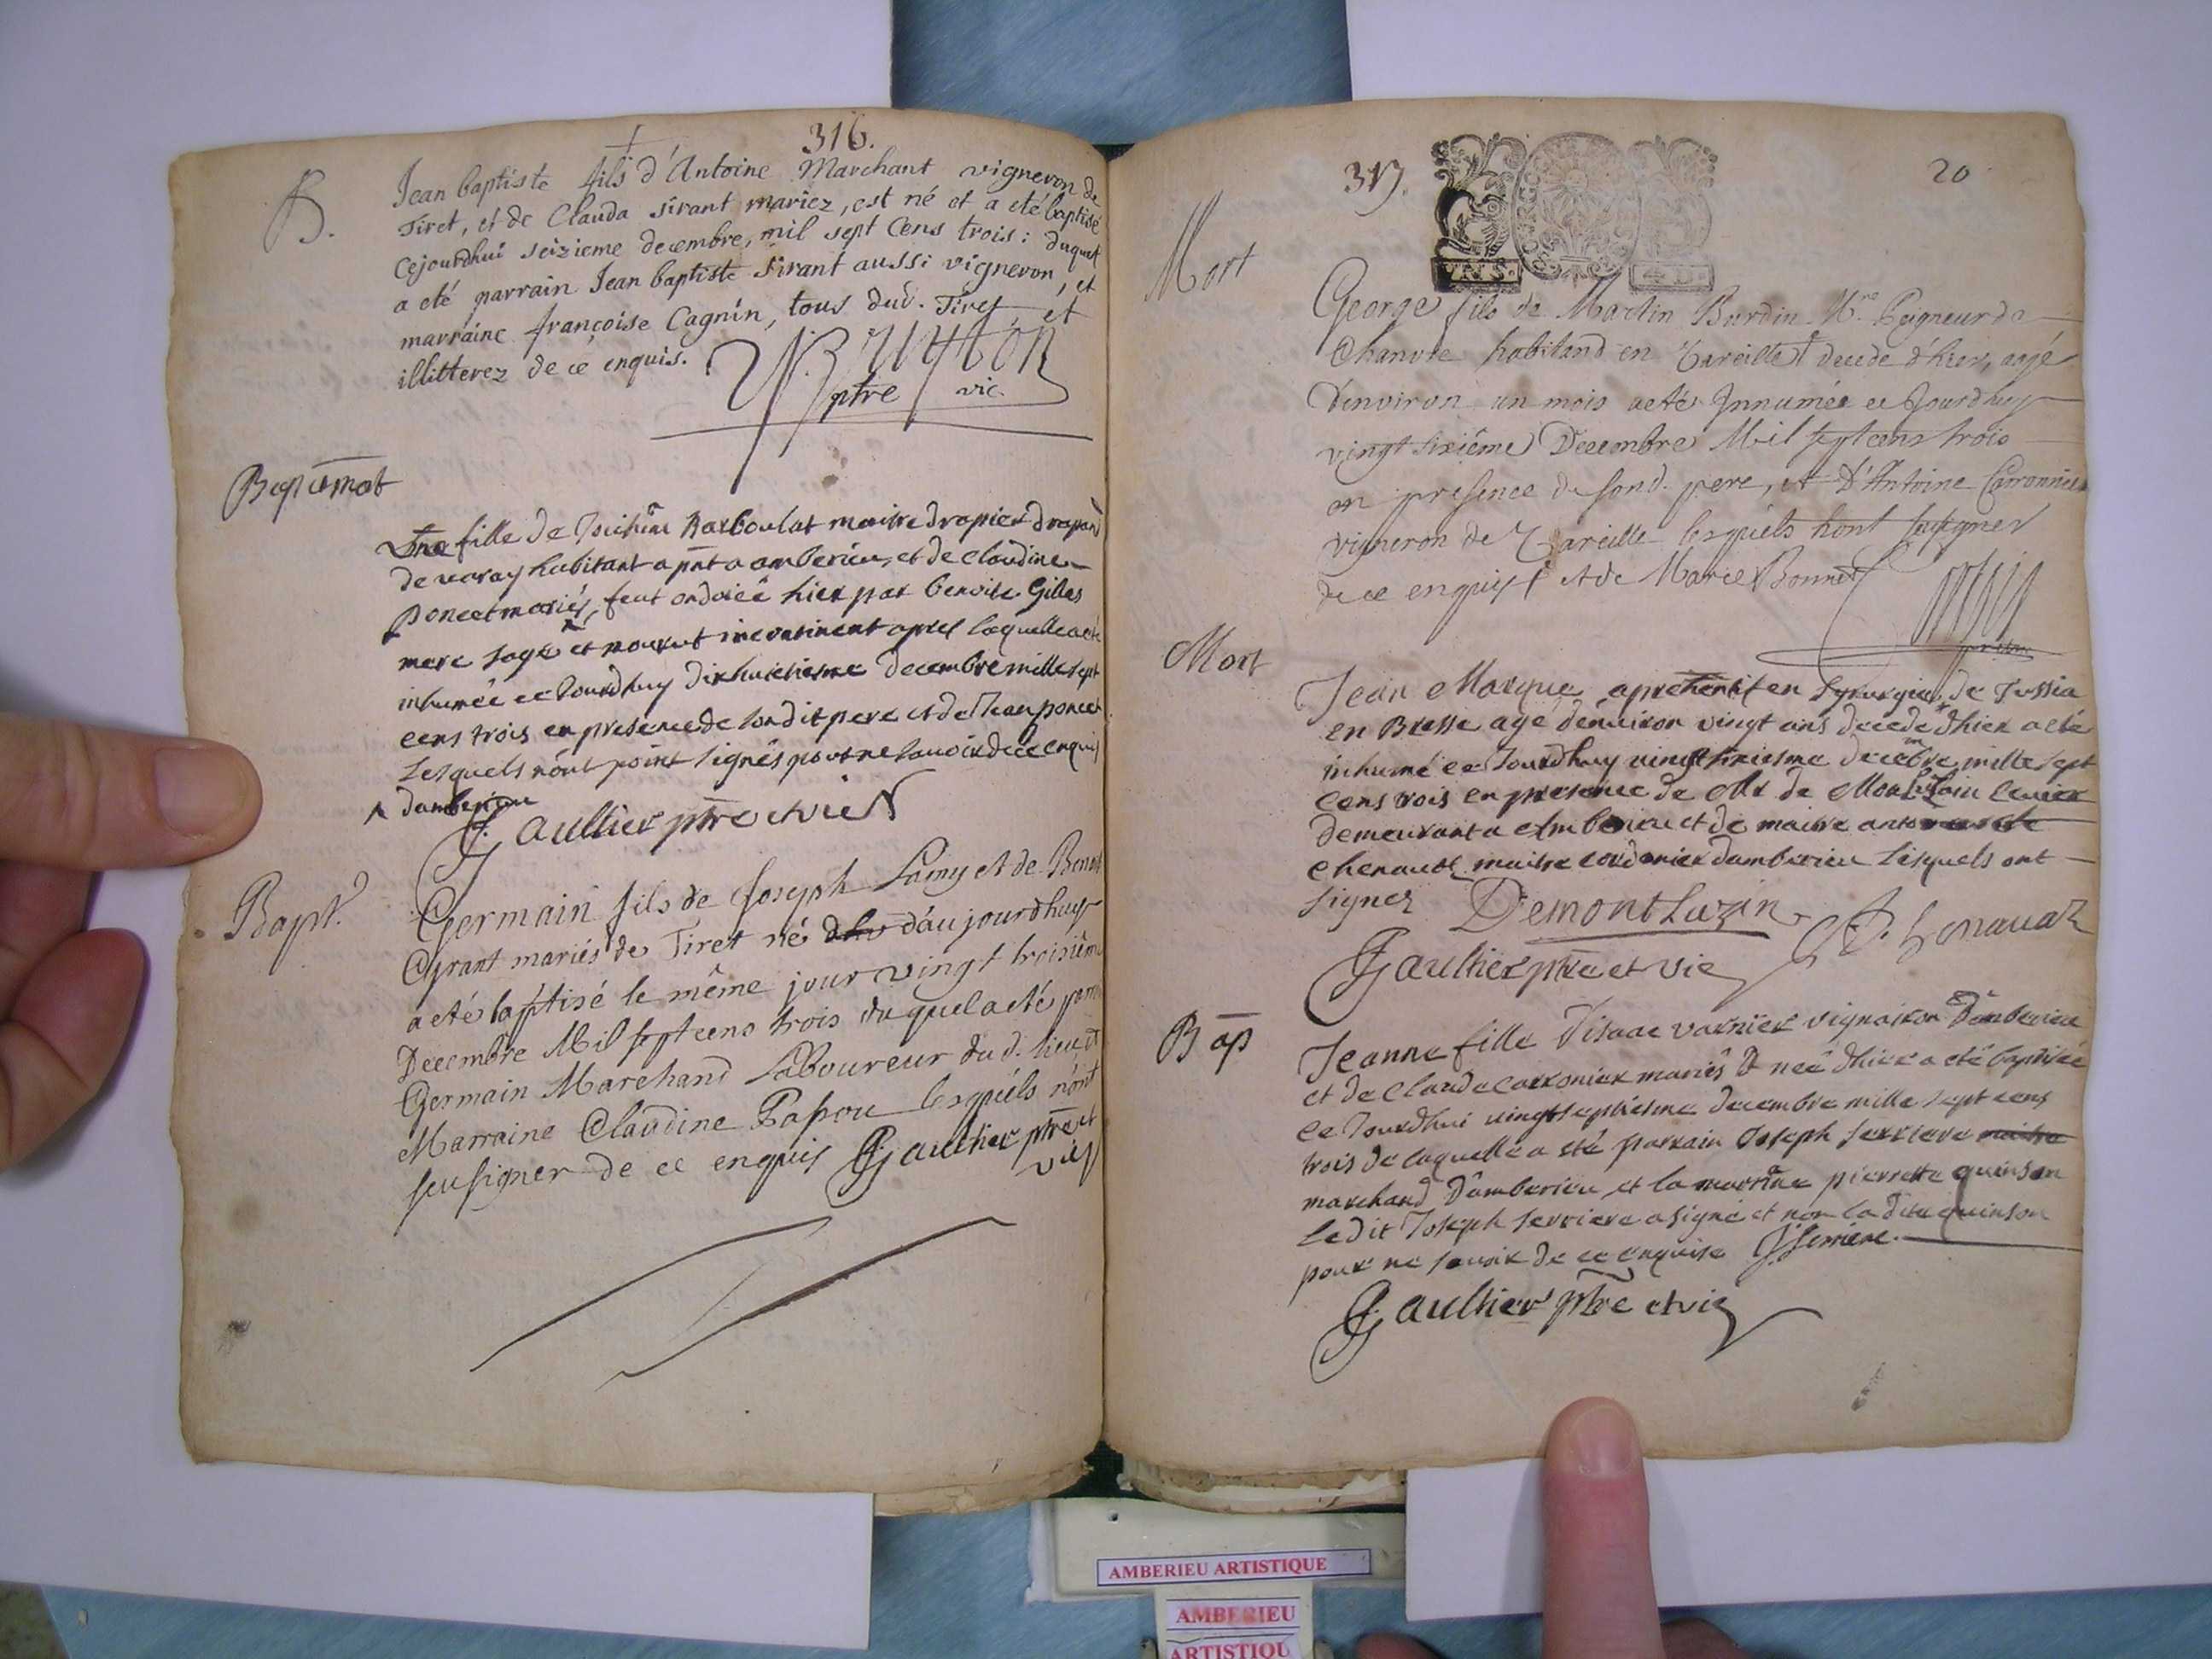 316.
B.
Jean baptiste fils d'Antoine Marchant vigneron de
Tiret, et de Clauda sirant mariez, est né et a eté baptisé
cejourdhui seizieme decembre, mil sept Cens trois: duquel
a eté parrain Jean baptiste sirant aussi vigneron, et
marraine françoise Cagnin, tous dud. Tiret et
illitterez de ce enquis.
ptre vic.
Bapt et mort
Une fille de Barboulat maitre drapier drapant
de habitant a pnt a amberieu, et de Claudine
Poncet mariés, feut ondoiée hier par benoite Gilles
mere sage ^ et mourut incontinent apres laquelle a eté
inhumée ce Jourdhuy dixhuictiesme decembre mille sept
cens trois en presence de sondit pere et de Jean poncet
Lesquels n'ont point signés pour ne scavoir de ce enquis
^ damberieu
Gaultier ptre et vic
Bapt.
Germain fils de Joseph Lamy et de Benoit
Cyrant mariés de Tiret né d'aujourdhuy
a eté baptisé le même jour vingt troisiéme
Decembre Mil sept cens trois du quel a eté parr
Germain Marchand Laboureur dud. lieu, et
Marraine Claudine Papou lesquéls n'ont
seu signer de ce enquis Gaultier ptre et
vic
317.
20
Mort
George fils de Martin Burdin Mre Peigneur de
Chanvre habitand en Vareille decede d'hier, agé
d'environ un mois a eté Innumée ce Jourdhuy
vingt sixiéme Decembre Mil sept cens trois
en presence de sond. pere, et d'Antoine Carronnier
vigneron de Vareille lesquéls n'ont seu signer
de ce enquis et de Marie Bonnet
Mort
Jean Marque aprehentif en Syrurgie, de Tussia
en Bresse agé d'enuiron vingt ans decedé d'hier a eté
inhumé ce Jourdhuy uingtsixiesme decembre mille sept
cens trois en presence de Mr de Montluzin
demeurant a Amberieu et de maitre
chenaual maitre cordonier damberieu Lesquels ont
signez Demontluzin Chenaual
Gaultier ptre et vic
Bap
Jeanne fille d'isaac varnier vigneron d'amberieu
et de Claude carronier mariés née d'hier a eté baptisée
ce Jourdhui uingtseptiesme decembre mille sept cens
trois de laquelle a eté parrain Joseph serriere maitre
marchand d'amberieu, et la marraine pierrette quinson
Ledit Joseph serriere a signé et non la dite quinson
pour ne scavoir de ce enquise J. serriere.
Gaultier ptre et vic
AMBERIEU ARTISTIQUE
AMBERIEU
ARTISTIQU